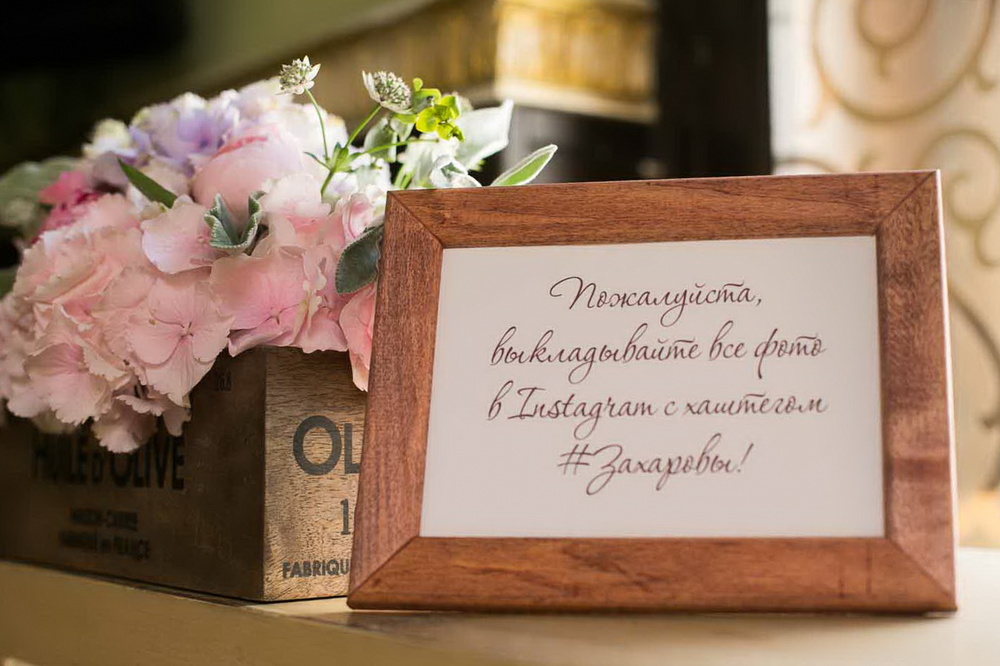 HUILE D'OLIVE
FABRIQUÉ EN FRANCE
OL
1
FABRIQU
Пожалуйста,
выкладывайте все фото
в Instagram с хаштегом
#Захаровы!